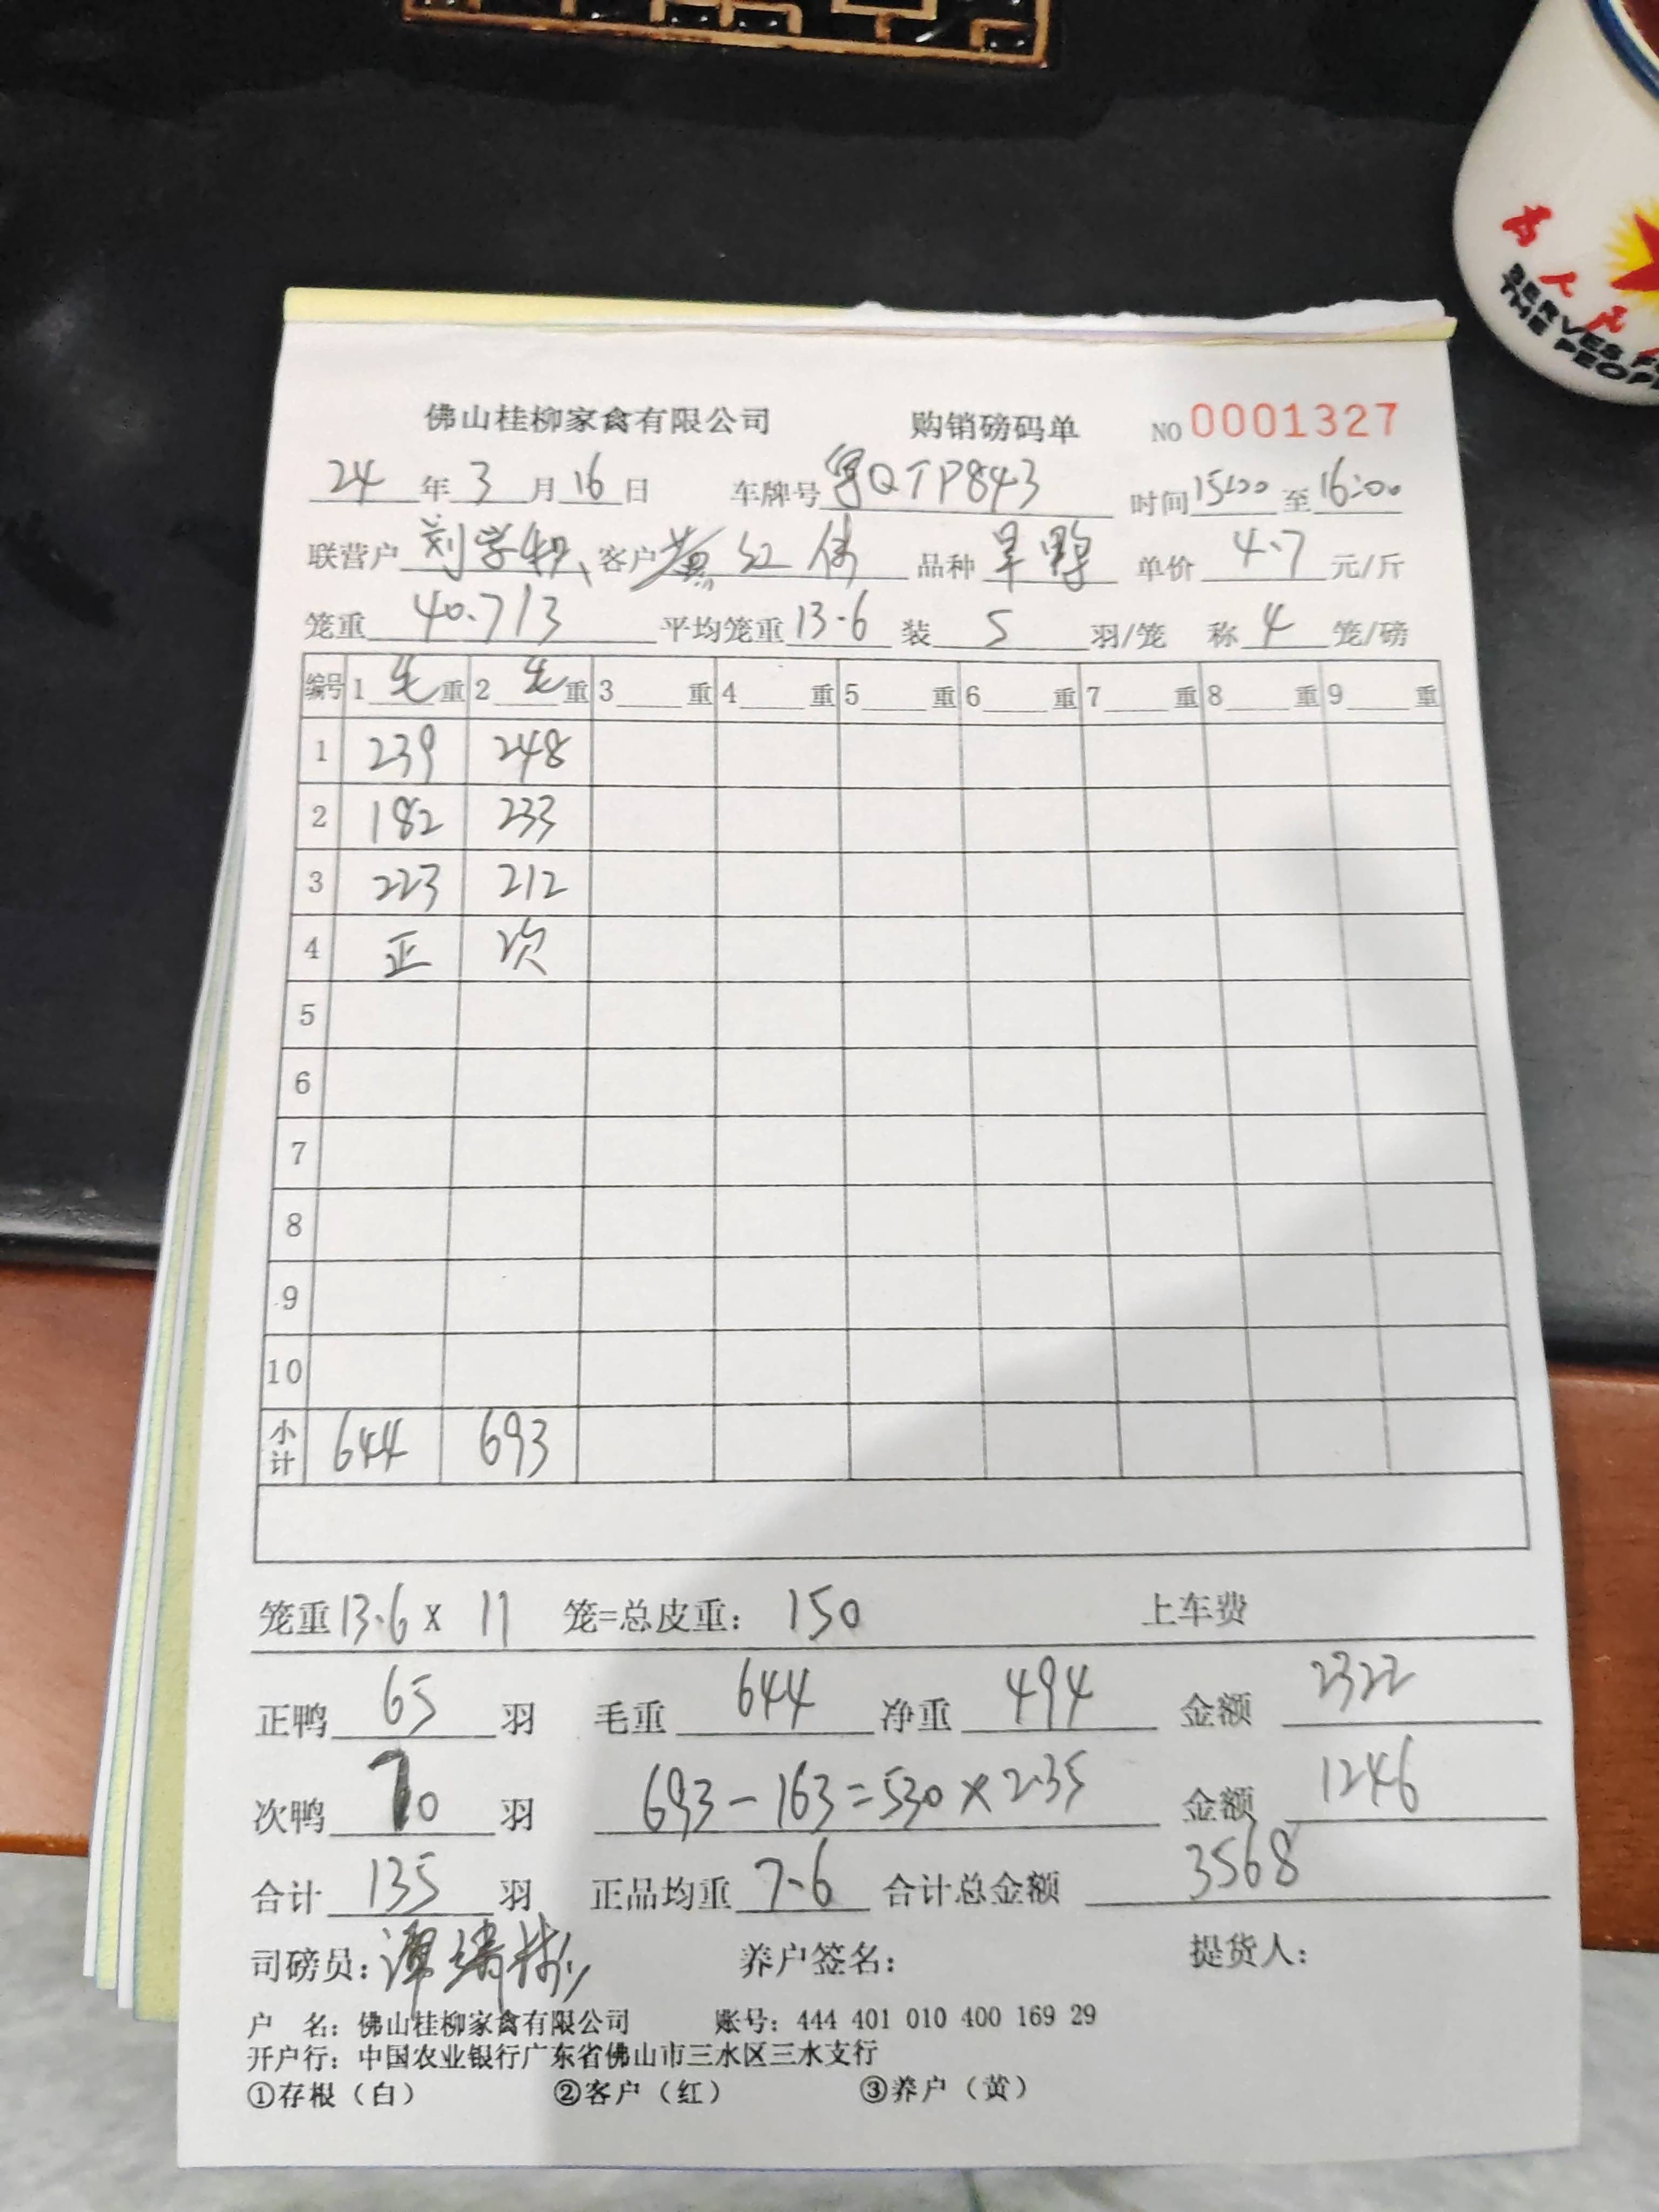 佛山桂柳家禽有限公司 购销磅码单 NO 0001327
24年3月16日 车牌号粤QTP843 时间15:00至16:00
联营户 刘学 客户黄红伟 品种 旱鸭 单价 4.7 元/斤
笼重 40.7/3 平均笼重13.6 装 5 羽/笼 称 4 笼/磅
编号 1毛重 2毛重 3重 4重 5重 6重 7重 8重 9重
1 239 248
2 182 233
3 223 212
4 正 次
5
6
7
8
9
10
小计 644 693
笼重13.6 X 11 笼=总皮重: 150 上车费
正鸭 65 羽 毛重 644 净重 494 金额 2322
次鸭 70 羽 693-163=530×2.35 金额 1246
合计 135 羽 正品均重 7.6 合计总金额 3568
司磅员: 养户签名: 提货人:
户 名: 佛山桂柳家禽有限公司 账号: 444 401 010 400 169 29
开户行: 中国农业银行广东省佛山市三水区三水支行
①存根（白） ②客户（红） ③养户（黄）
为人民
SERVES
THE PEOP